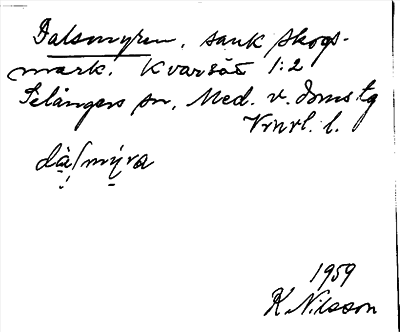 Dalsmyren, sank skogs-
mark. Kvarsåt 1:2
Selångers sn, Med. v. doms.tg
Vrnrl. l.
dà̤/mýra
1959
K. Nilsson